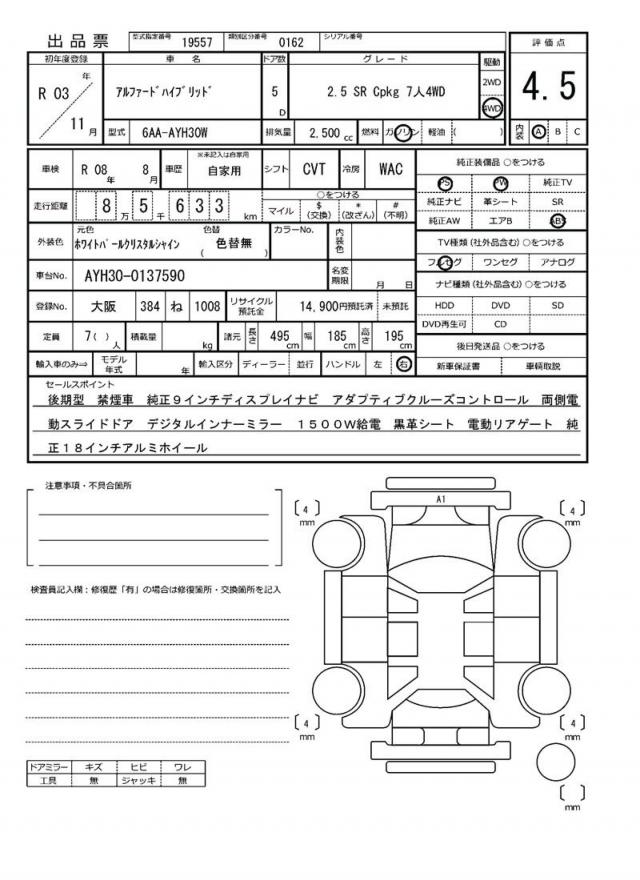 出品票 型式指定番号 19557 類別区分番号 0162 シリアル番号
初年度登録 車名 ドア数 グレード 駆動 評価点
R 03 年 11 月 ｱﾙﾌｧｰﾄﾞﾊｲﾌﾞﾘｯﾄﾞ 5 D 2.5 SR Cpkg 7人4WD 2WD 4WD 4.5
型式 6AA-AYH30W 排気量 2,500 cc 燃料 ガソリン 軽油 ( ) 内装 A B C
車検 R 08 年 8 月 車歴 ※未記入は自家用 自家用 シフト CVT 冷房 WAC 純正装備品 ○をつける
PS PW 純正TV
走行距離 8 5 万 6 3 3 千 km ○をつける マイル $ (交換) * (改ざん) # (不明) 純正ナビ 革シート SR
純正AW エアB ABS
外装色 元色 ﾎﾜｲﾄﾊﾟｰﾙｸﾘｽﾀﾙｼｬｲﾝ 色替 ( 色替無 ) カラーNo. 内装色 TV種類 (社外品含む) ○をつける
フルセグ ワンセグ アナログ
車台No. AYH30-0137590 名変期限 月 日 ナビ種類 (社外品含む) ○をつける
登録No. 大阪 384 ね 1008 リサイクル預託金 14,900円預託済 未預託 HDD DVD SD
DVD再生可 CD
定員 7( ) 人 積載量 kg 諸元 長さ 495 cm 幅 185 cm 高さ 195 cm 後日発送品 ○をつける
輸入車のみ⇒ モデル年式 年 輸入区分 ディーラー 並行 ハンドル 左 右 新車保証書 車輌取説
セールスポイント
後期型 禁煙車 純正９インチディスプレイナビ アダプティブクルーズコントロール 両側電
動スライドドア デジタルインナーミラー １５００Ｗ給電 黒革シート 電動リアゲート 純
正１８インチアルミホイール
注意事項・不具合箇所
A1
〔 4 〕 mm 〔 4 〕 mm
検査員記入欄：修復歴「有」の場合は修復箇所・交換箇所を記入
〔 4 〕 mm 〔 4 〕 mm
ドアミラー キズ ヒビ ワレ
工具 無 ジャッキ 無
〔 〕 mm